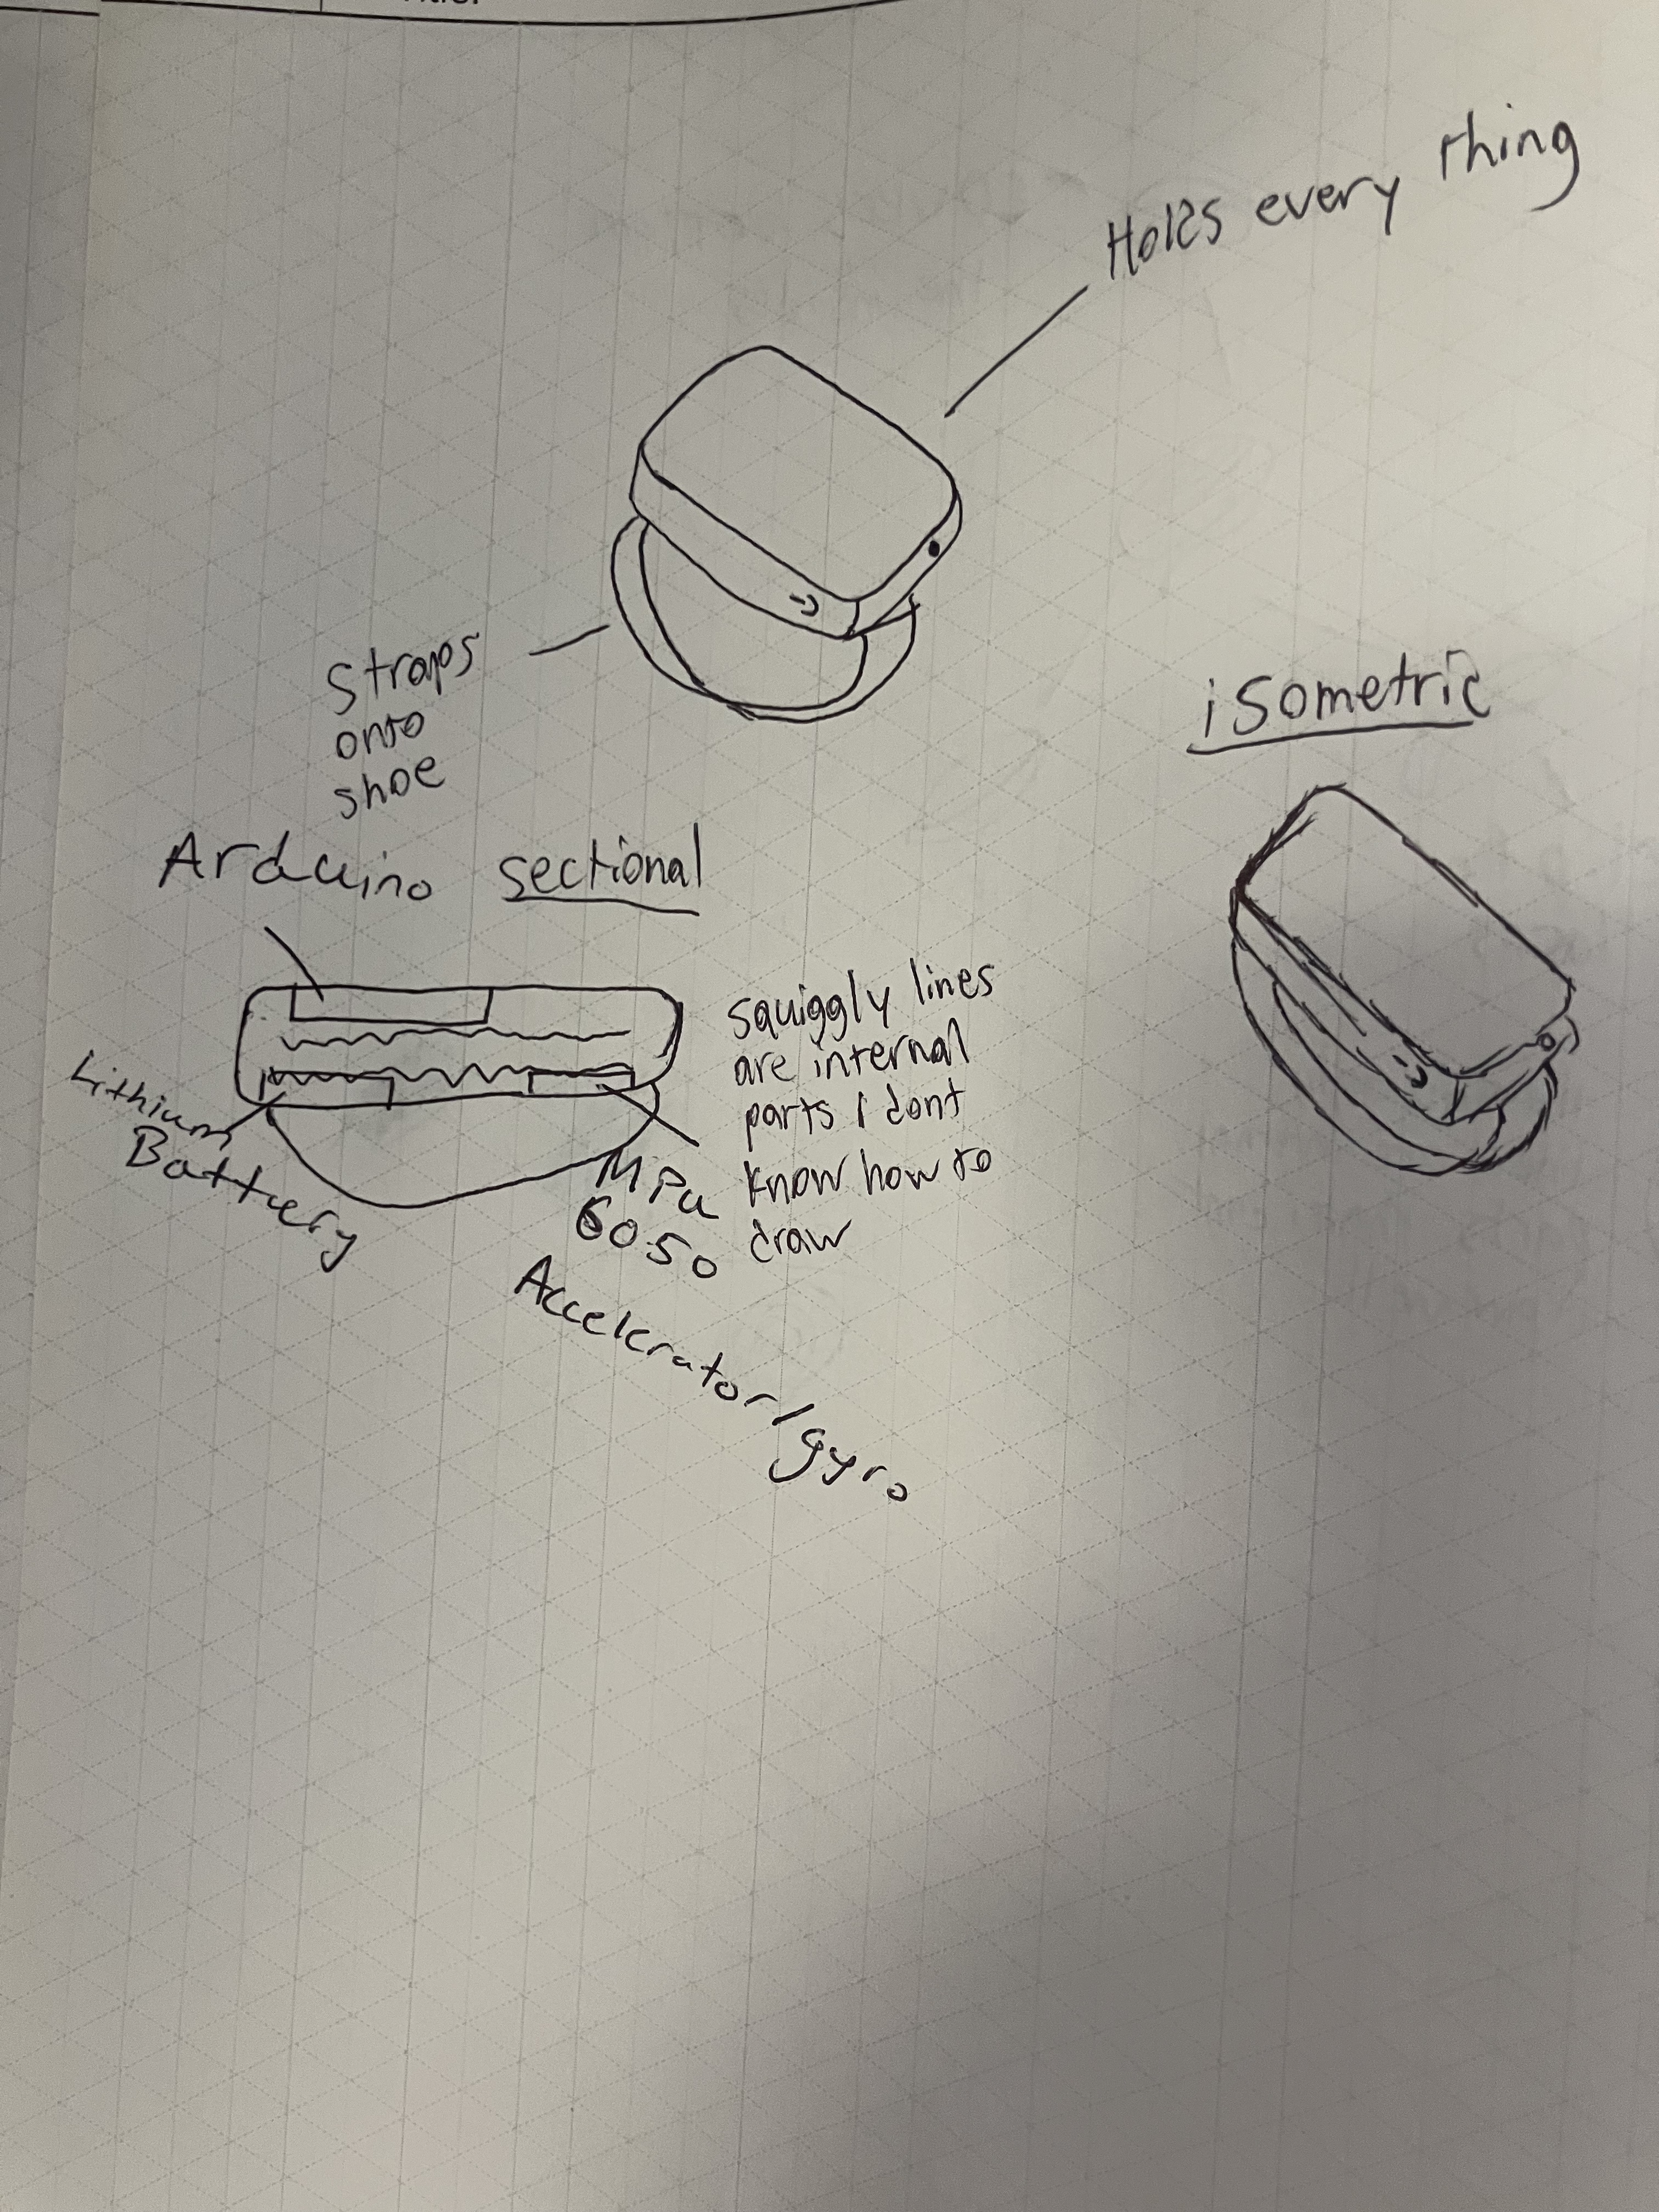 Holds every thing
Straps
onto
shoe
isometric
Arduino
sectional
squiggly lines
are internal
parts I dont
know how to
draw
Lithium
Battery
MPU
6050
Accelerator/gyro